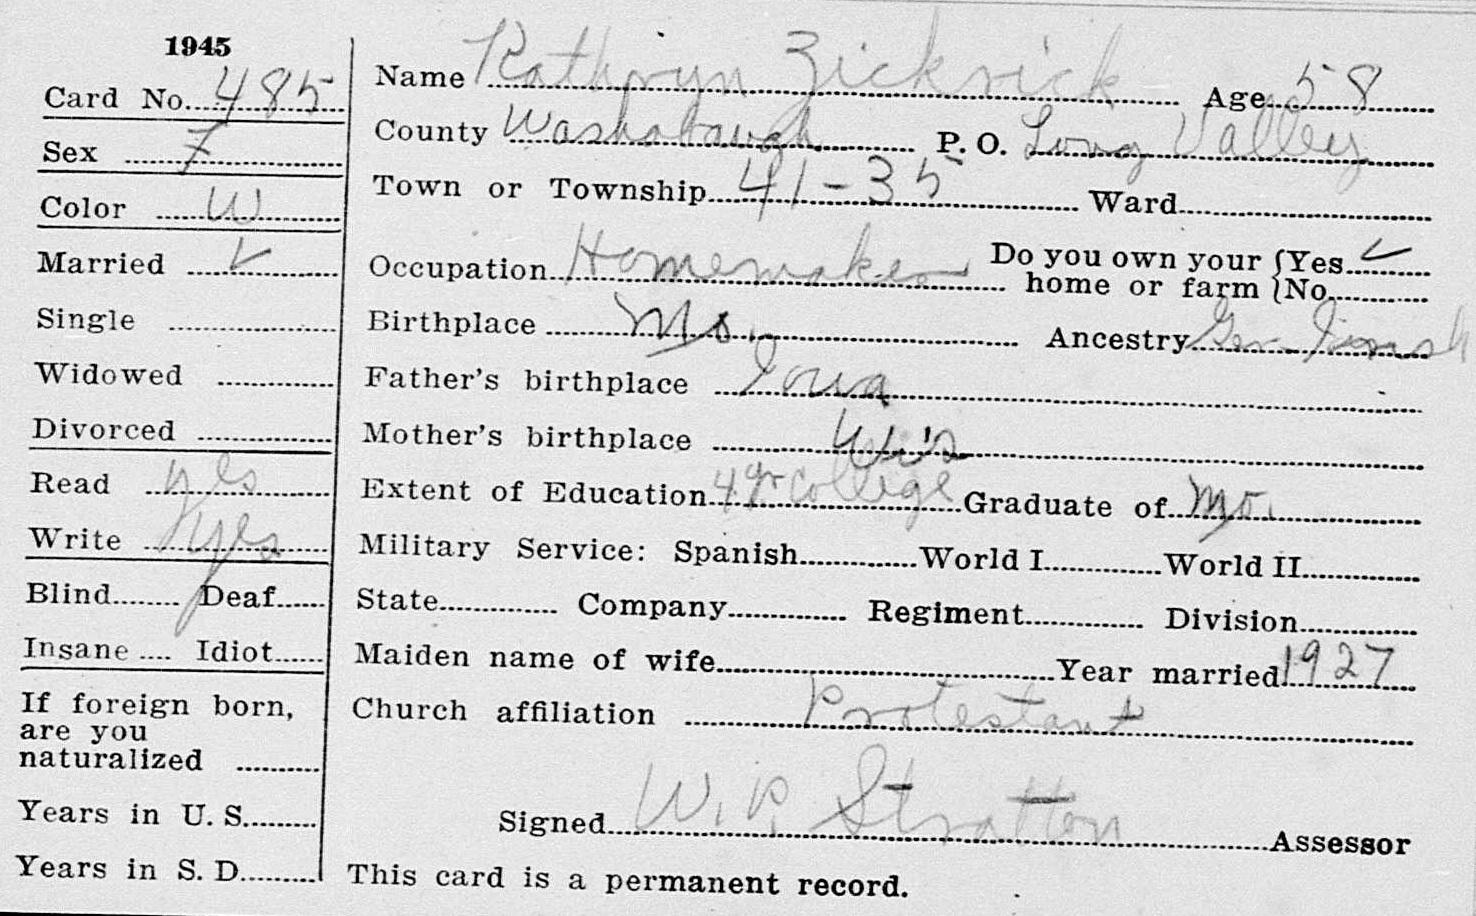 1945
Card No. 485
Sex F
Color W
Married ✓
Single
Widowed
Divorced
Read yes
Write yes
Blind Deaf
Insane Idiot
If foreign born,
are you
naturalized
Years in U. S.
Years in S. D.
Name Kathryn Zickrick Age 58
County Washabaugh P. O. Long Valley
Town or Township 41-35 Ward
Occupation Homemaker Do you own your home or farm Yes ✓ No
Birthplace Mo. Ancestry Ger
Father's birthplace Iowa
Mother's birthplace Wis
Extent of Education 4 yr College Graduate of Mo.
Military Service: Spanish World I World II
State Company Regiment Division
Maiden name of wife Year married 1927
Church affiliation Protestant
Signed W. P. Stratton Assessor
This card is a permanent record.